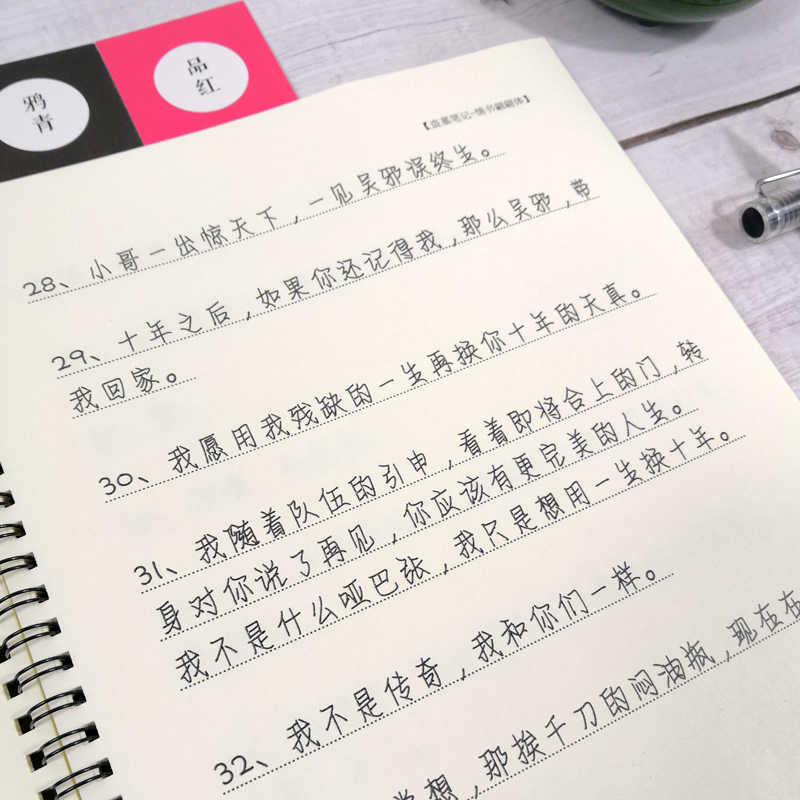 鸦青
品红
【盗墓笔记·情书翩翩体】
28、小哥一出惊天下，一见吴邪误终生。
29、十年之后，如果你还记得我，那么吴邪，带
我回家。
30、我愿用我残缺的一生再换你十年的天真。
31、我随着队伍的引申，看着即将合上的门，转
身对你说了再见，你应该有更完美的人生。
我不是什么哑巴张，我只是想用一生换十年。
32、我不是传奇，我和你们一样。
想，那挨千刀的闷油瓶，现在在